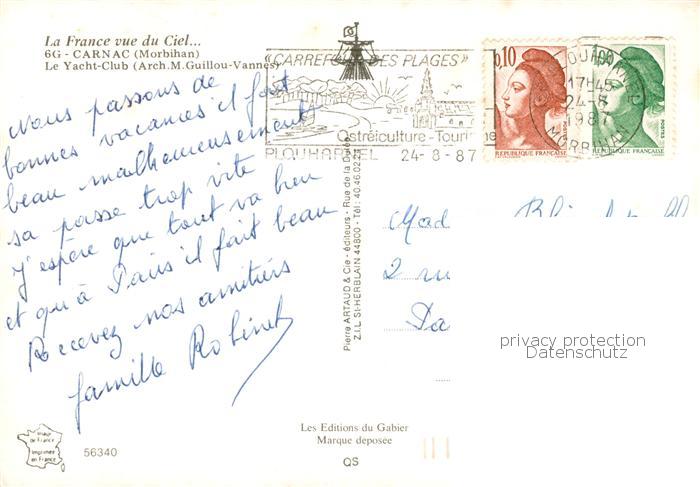 La France vue du Ciel...
6G - CARNAC (Morbihan)
Le Yacht-Club (Arch.M.Guillou-Vannes)
"CARREFOUR DES PLAGES"
Ostréiculture-Tourisme
PLOUHARNEL 24-8-87
0,10
REPUBLIQUE FRANÇAISE
1,00
POSTES
REPUBLIQUE FRANÇAISE
PLOUHARNEL
17H45
24-8
1987
MORBIHAN
Nous passons de
bonnes vacances il fait
beau malheureusement
sa passe trop vite
J'espère que tout va bien
et qu'à Paris il fait beau
Recevez nos amitiés
famille Robinet
Pierre ARTAUD & Cie - éditeurs - Rue de la
Z.I.L. St-HERBLAIN 44800 - Tél : 40.46.02.22
Mad
2 ru
Pa
privacy protection
Datenschutz
Les Editions du Gabier
Marque deposée
QS
Image de France
Imprimée en France
56340